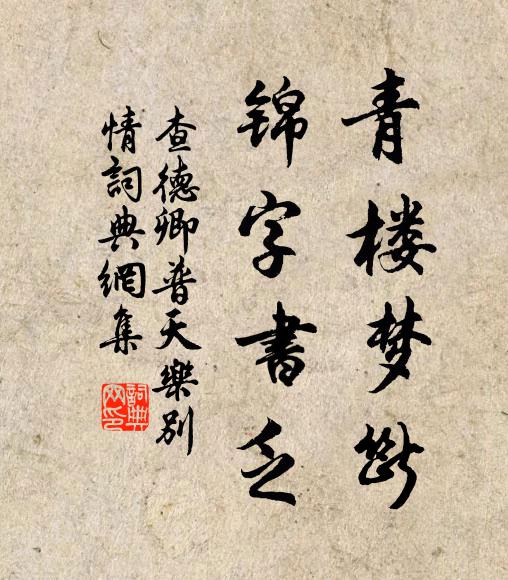 青楼梦断
锦字書乏
查德卿普天樂别
情詞典網集
詞典網印